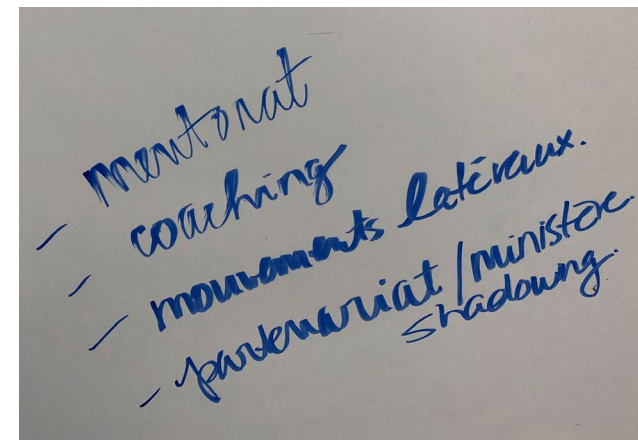 - mentorat
- coaching
- mouvements latéraux.
- partenariat/ministère.
shadowing.